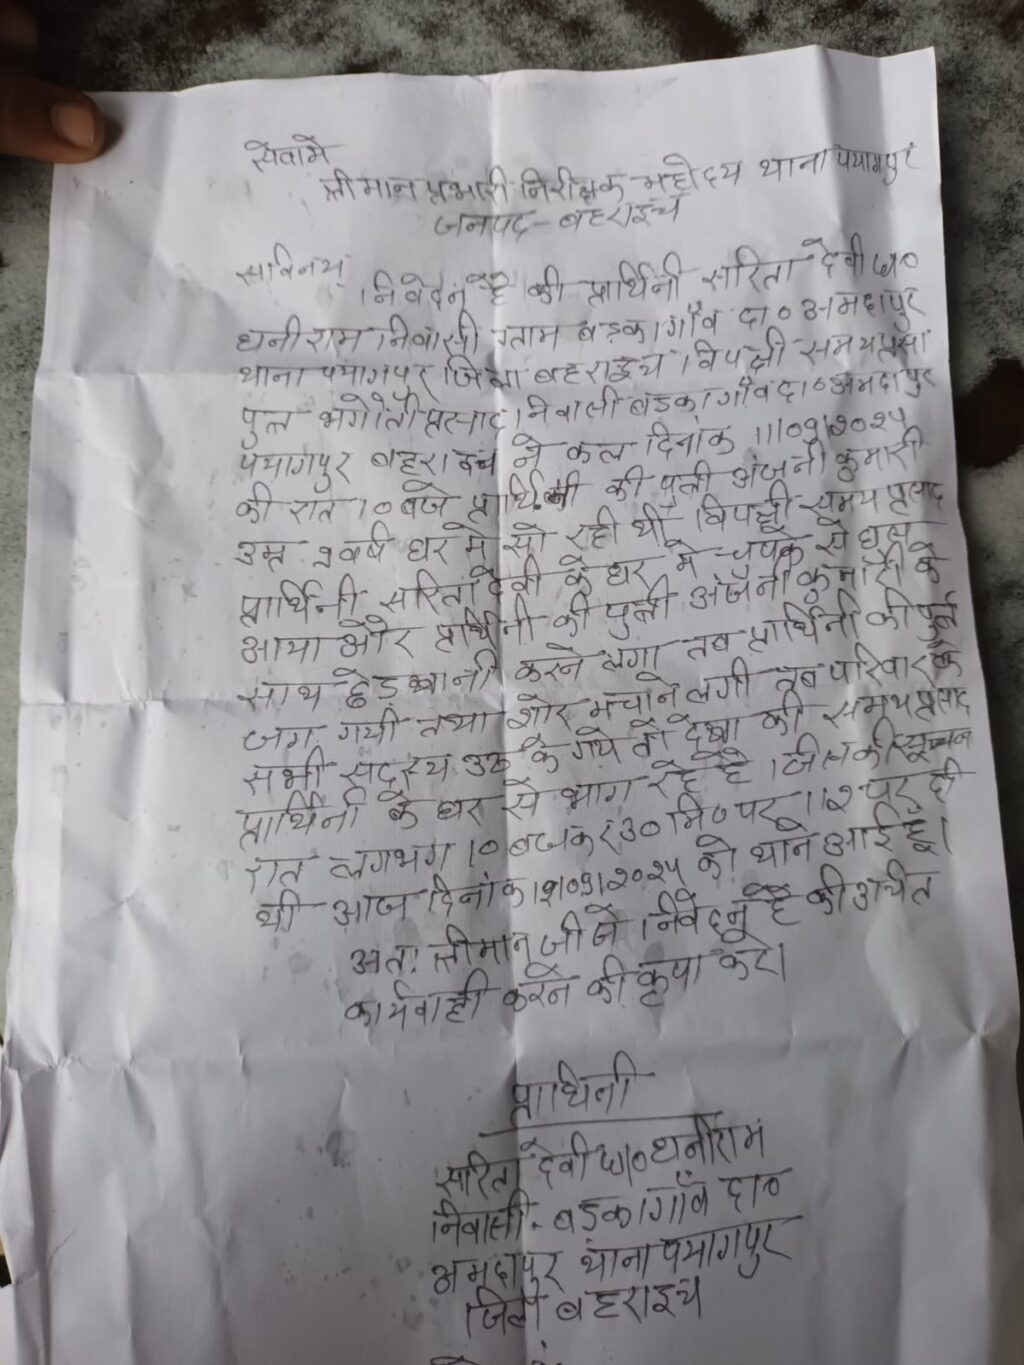 सेवामे
श्रीमान प्रभारी निरीक्षक महोदय थाना पयागपुर
जनपद - बहराइच
सविनय
निवेदन है की प्रार्थिनी सरिता देवी प०
धनीराम निवासी ग्राम बडकागाँव दा० अमदापुर
थाना पयागपुर जिला बहराइच । विपक्षी समयप्रसा
पुत्र भगोती प्रसाद निवासी बडकागाँव दा० अमदापुर
पयागपुर बहराइच ने कल दिनांक 11109।2025
की रात 10 बजे प्रार्थिनी की पुत्री अंजनी कुमारी
उम्र वर्ष घर मे सो रही थी विपक्षी समय प्रसाद
प्रार्थिनी सरिता देवी के घर मे चुपके से घुस
आया और प्रार्थिनी की पुत्री अंजनी कुमारी के
साथ छेड़खानी करने लगा तब प्रार्थिनी की पुत्री
जग गयी तथा शोर मचाने लगी तब परिवार के
सभी सदस्य उठ के गये तो देखा की समय प्रसाद
प्रार्थिनी के घर से भाग रहे है । जिसकी सूचना
रात लगभग 10 बजकर 30 मि० पर 112 पर दी
थी आज दिनांक 12।09।2025 को थाने आई हूं।
अतः श्रीमान जी से निवेदन है की उचित
कार्यवाही करने की कृपा करे।
प्रार्थिनी
सरिता देवी प० धनीराम
निवासी - बड़कागाँव दा०
अमदापुर थाना पयागपुर
जिला बहराइच